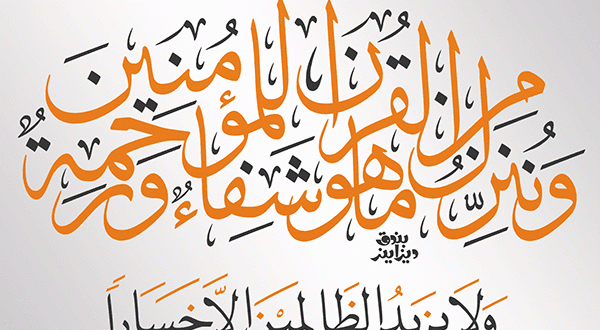 وَنُنَزِّلُ مِنَ الْقُرْآنِ مَا هُوَ شِفَاءٌ وَرَحْمَةٌ لِلْمُؤْمِنِينَ
وَلَا يَزِيدُ الظَّالِمِينَ إِلَّا خَسَارًا